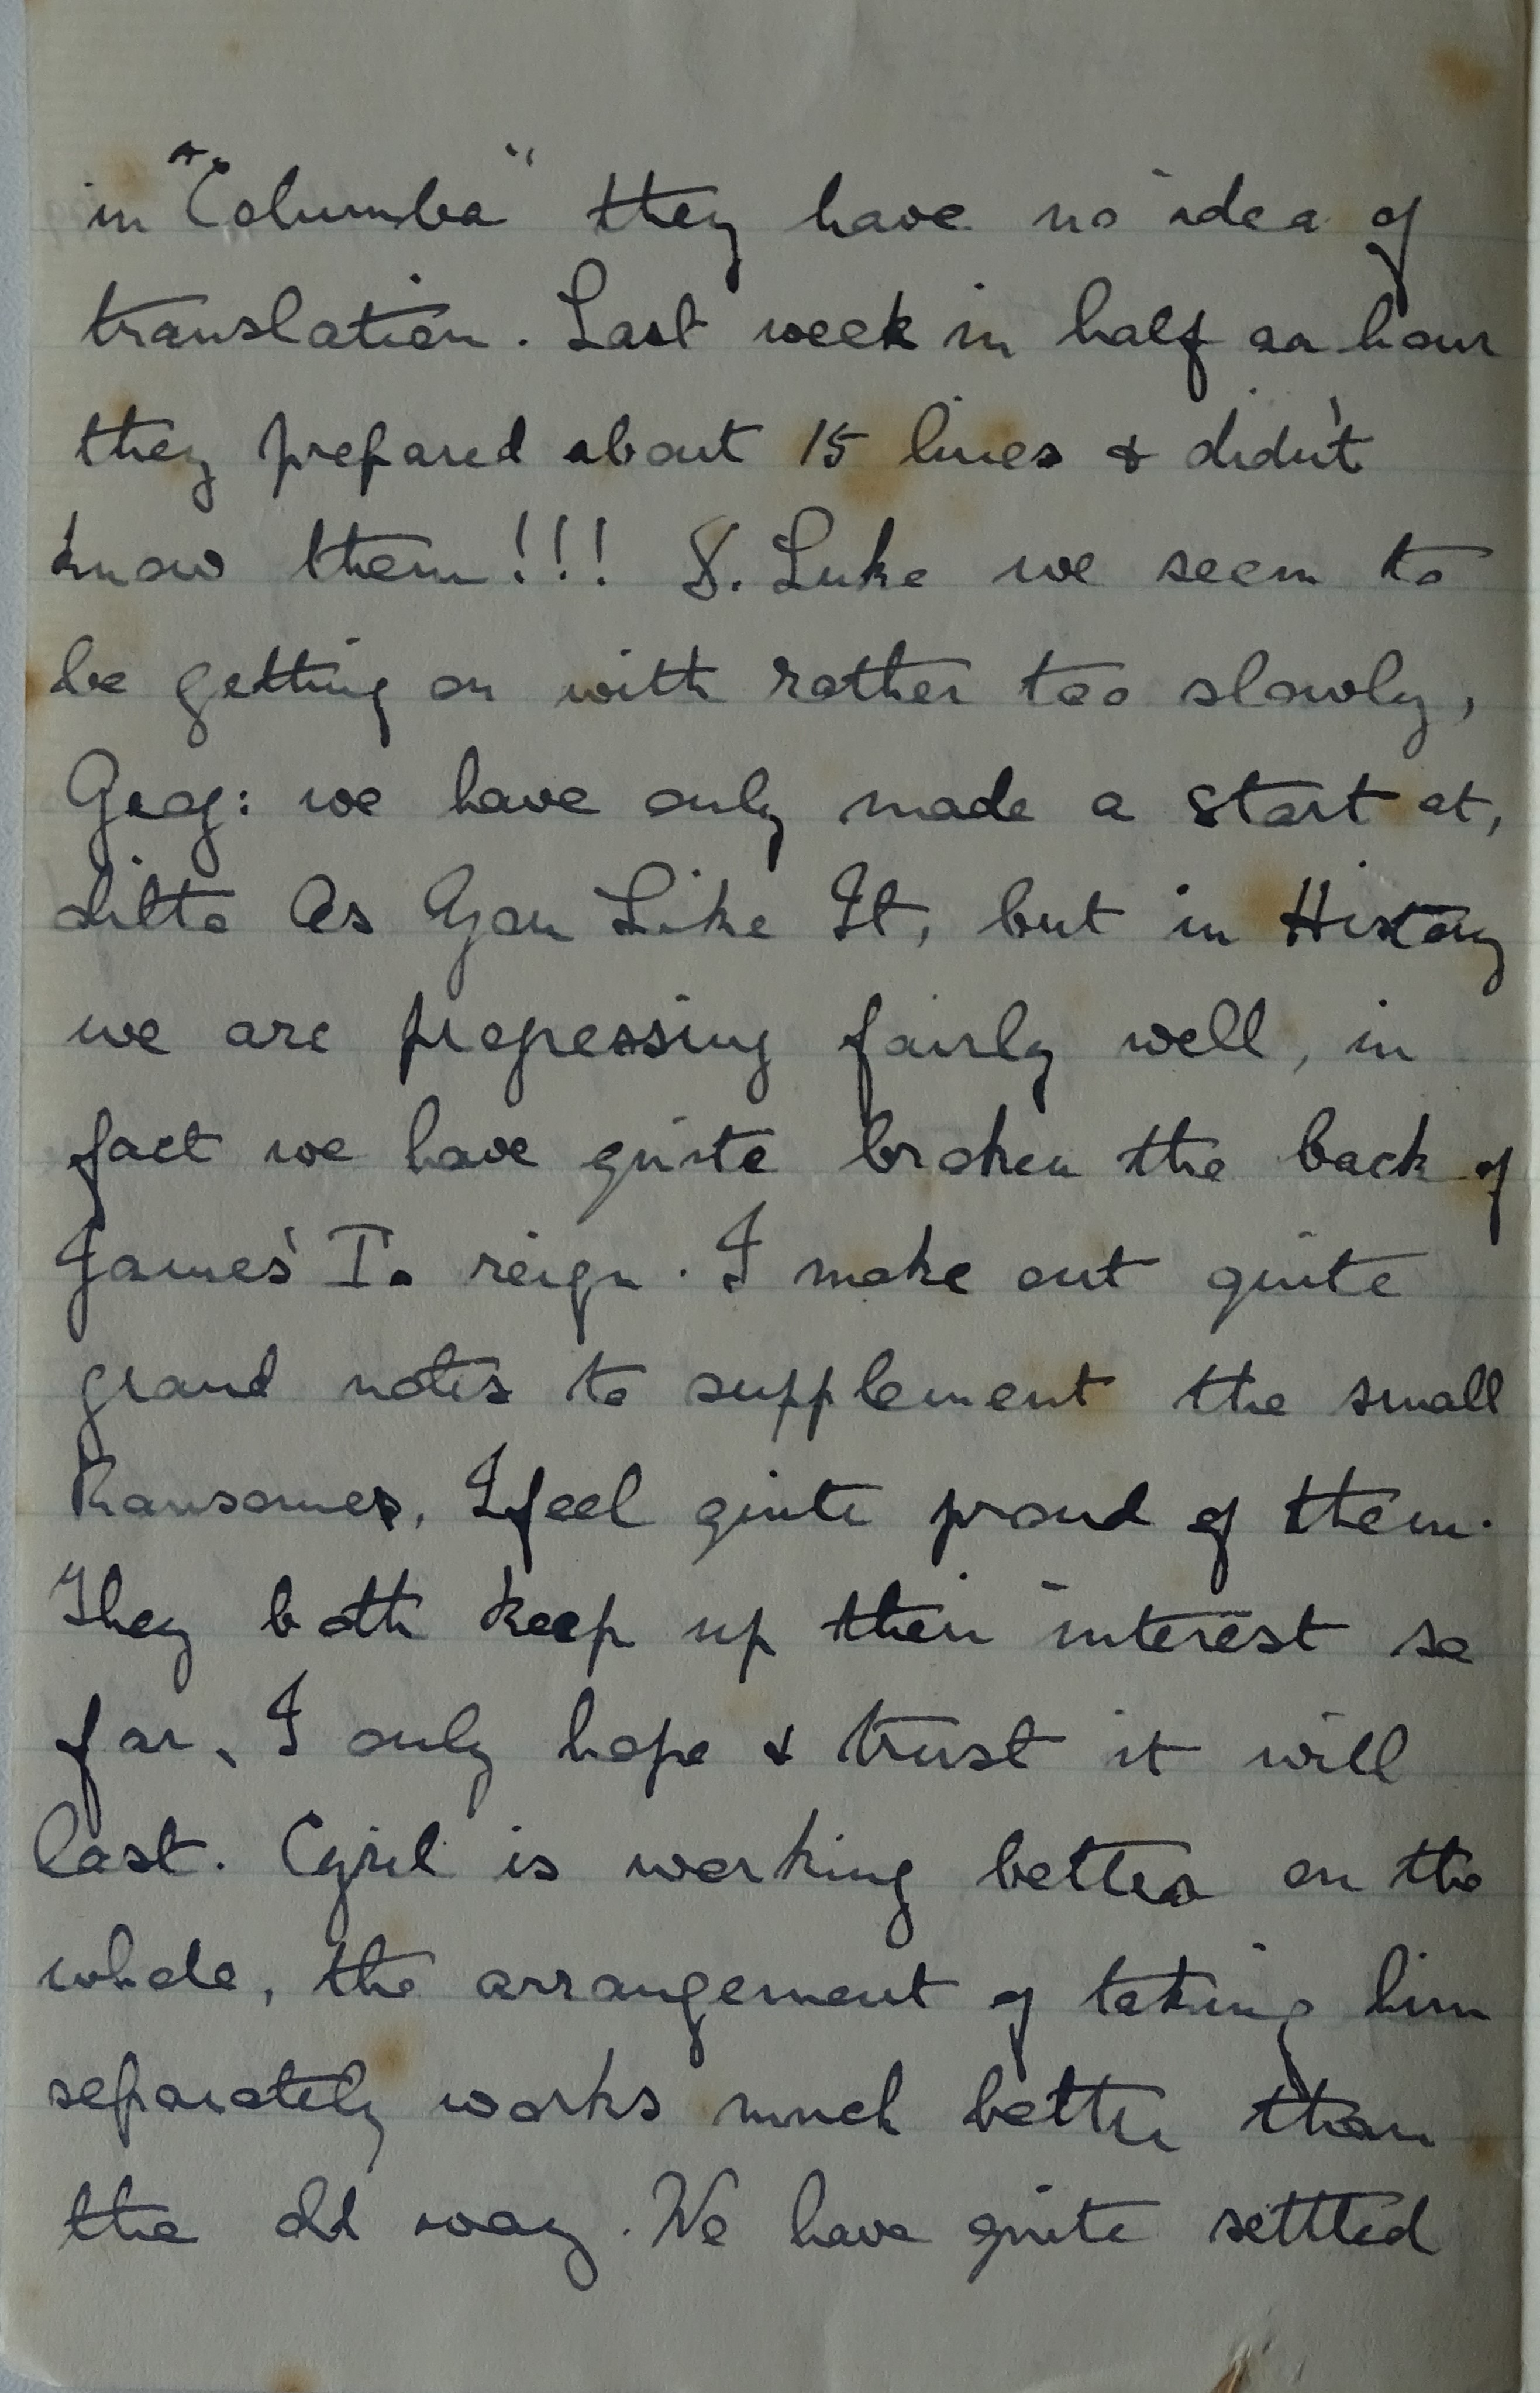 in "Columba" they have no idea of
translation. Last week in half an hour
they prepared about 15 lines & didn't
know them!!! S. Luke we seem to
be getting on with rather too slowly,
Geog: we have only made a start at,
ditto As You Like It, but in History
we are progressing fairly well, in
fact we have quite broken the back of
James' I. reign. I make out quite
grand notes to supplement the small
Ransomes, I feel quite proud of them.
They both keep up their interest so
far, I only hope & trust it will
last. Cyril is working better on the
whole, the arrangement of taking him
separately works much better than
the old way. We have quite settled